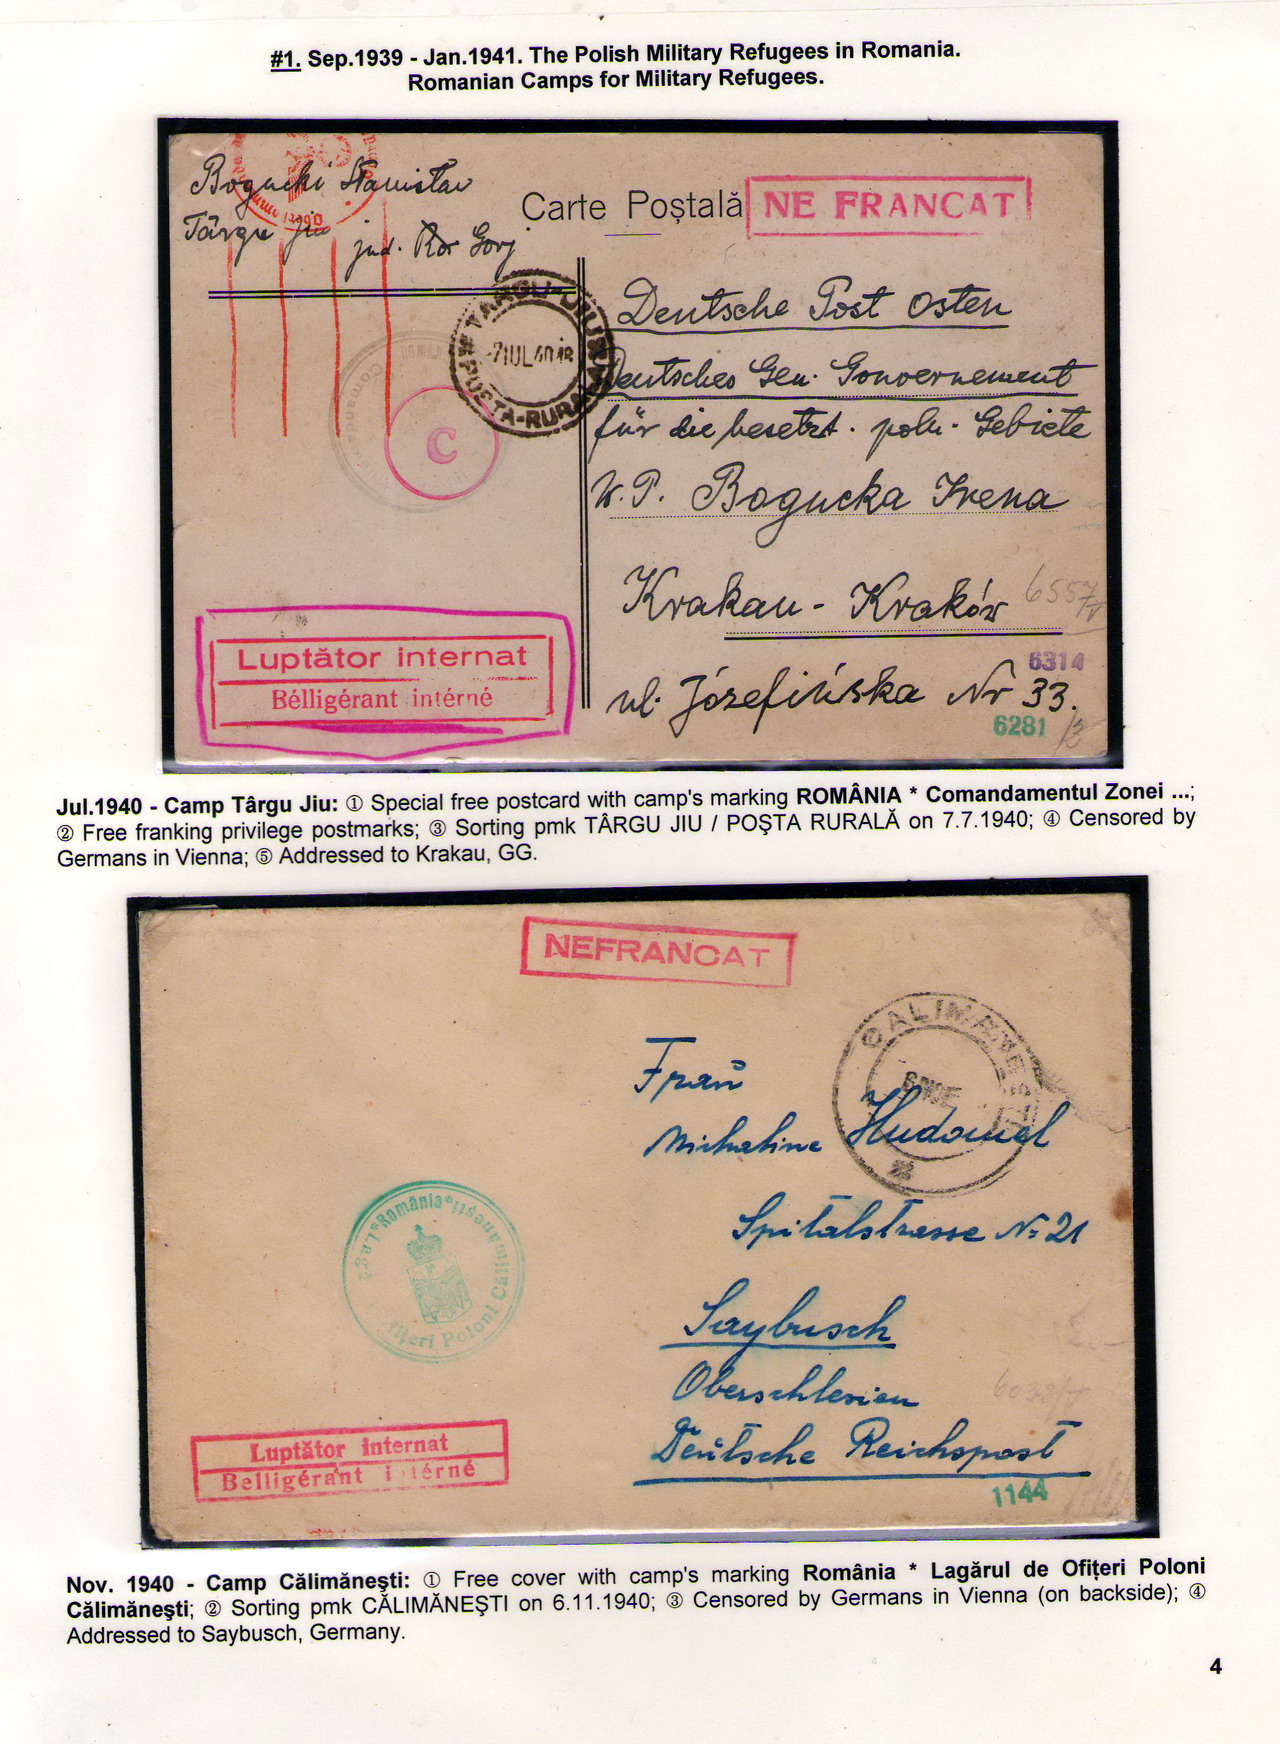 #1. Sep.1939 - Jan.1941. The Polish Military Refugees in Romania.
Romanian Camps for Military Refugees.
Bogucki Stanisław
Târgu Jiu
jud. Gorj
Carte Poștală
NE FRANCAT
TÂRGU-JIU
-7 IUL 40 18
POȘTA-RURALĂ
Comanda
C
Deutsche Post Osten
Deutsches Gen. Gouvernement
für die besetzt. poln. Gebiete
W.P. Bogucka Irena
Krakau - Kraków
6557/V
6314
ul. Józefińska Nr 33.
6281
Luptător internat
Bélligérant intérné
Jul.1940 - Camp Târgu Jiu: ① Special free postcard with camp's marking ROMÂNIA * Comandamentul Zonei ...;
② Free franking privilege postmarks; ③ Sorting pmk TÂRGU JIU / POŞTA RURALĂ on 7.7.1940; ④ Censored by
Germans in Vienna; ⑤ Addressed to Krakau, GG.
NEFRANCAT
CALIMANESTI
Frau
Michaline Hudomel
Spitalstrasse No 21
Saybusch
Oberschlesien
Deutsche Reichspost
1144
*România*
fițeri Poloni Călimanești
Luptător internat
Belligérant intérné
Nov. 1940 - Camp Călimăneşti: ① Free cover with camp's marking România * Lagărul de Ofiţeri Poloni
Călimăneşti; ② Sorting pmk CĂLIMĂNEŞTI on 6.11.1940; ③ Censored by Germans in Vienna (on backside); ④
Addressed to Saybusch, Germany.
4